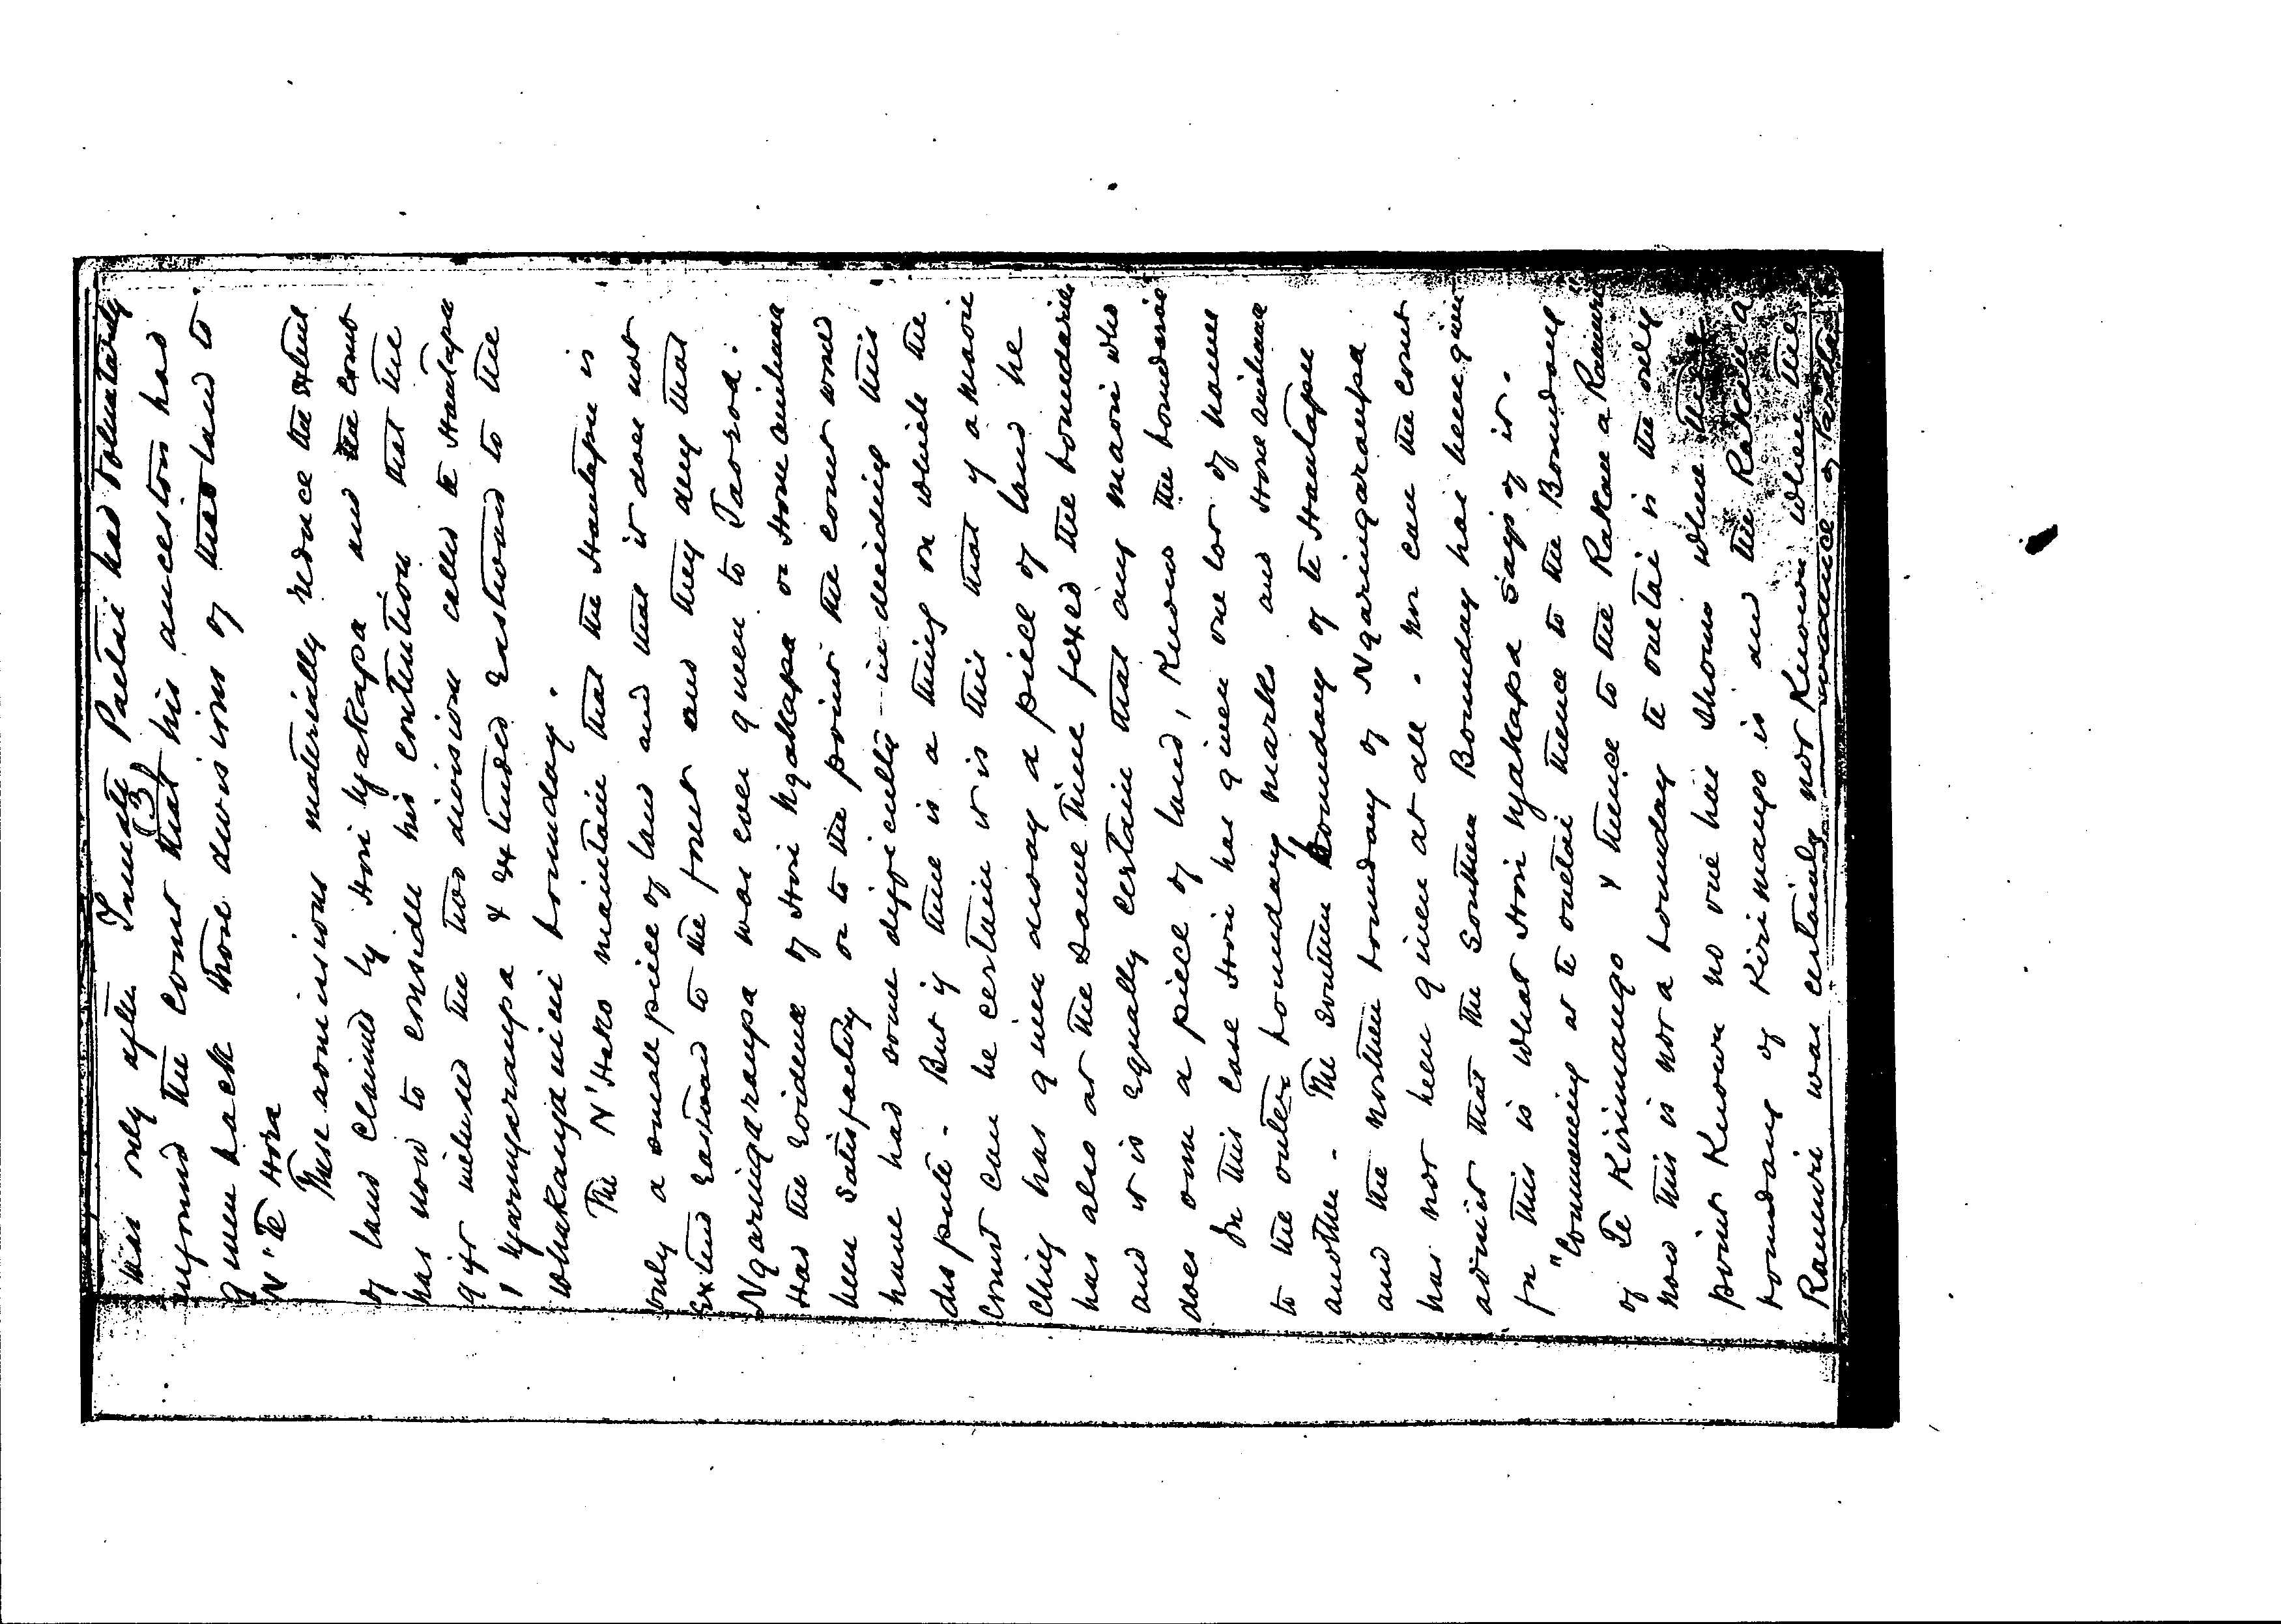 was only after Tamati Paetai had voluntarily
(3)
informed the Court that his ancestors had
given back those divisions of that land to
N' Te Hora
These admissions materially reduce the extent
of land claimed by Hori Ngakapa and the Court
has now to consider his contention that the
gift included the two divisions called te Hautapu
& Ngaringaraupa & extended Eastward to the
Whakangamiei boundary.
The N'Hako maintain that the Hautapu is
only a small piece of land and that it does not
extend Eastward to the forest and they deny that
Ngaringaraupa was ever given to Taoroa.
Had the evidence of Hori Ngakapa or Hone
been satisfactory or to the point the Court would
have had some difficulty in deciding this
dispute. But if there is a thing on which the
Court can be certain it is this that if a maori
Chief has given away a piece of land he
has also at the same time fixed the boundaries
and it is equally certain that any maori who
does own a piece of land, knows the boundaries
In this case Hori has given one lot of names
to the outer boundary marks and Hone
another. The southern Boundary of te Hautapu
and the northern boundary of Ngaringaraupa
has not been given at all. nor can the Court
admit that the Southern Boundary has been given
for this is what Hori Ngakapa says of it.
"Commencing at te onetai thence to the Boundary
of Te Kirimango & thence to the Rakau a Ramiri"
now this is not a boundary te onetai is the only
point known no one has shown where the
boundary of Kirimango is and the Rakau a
Ramiri was certainly not known when the
evidence of